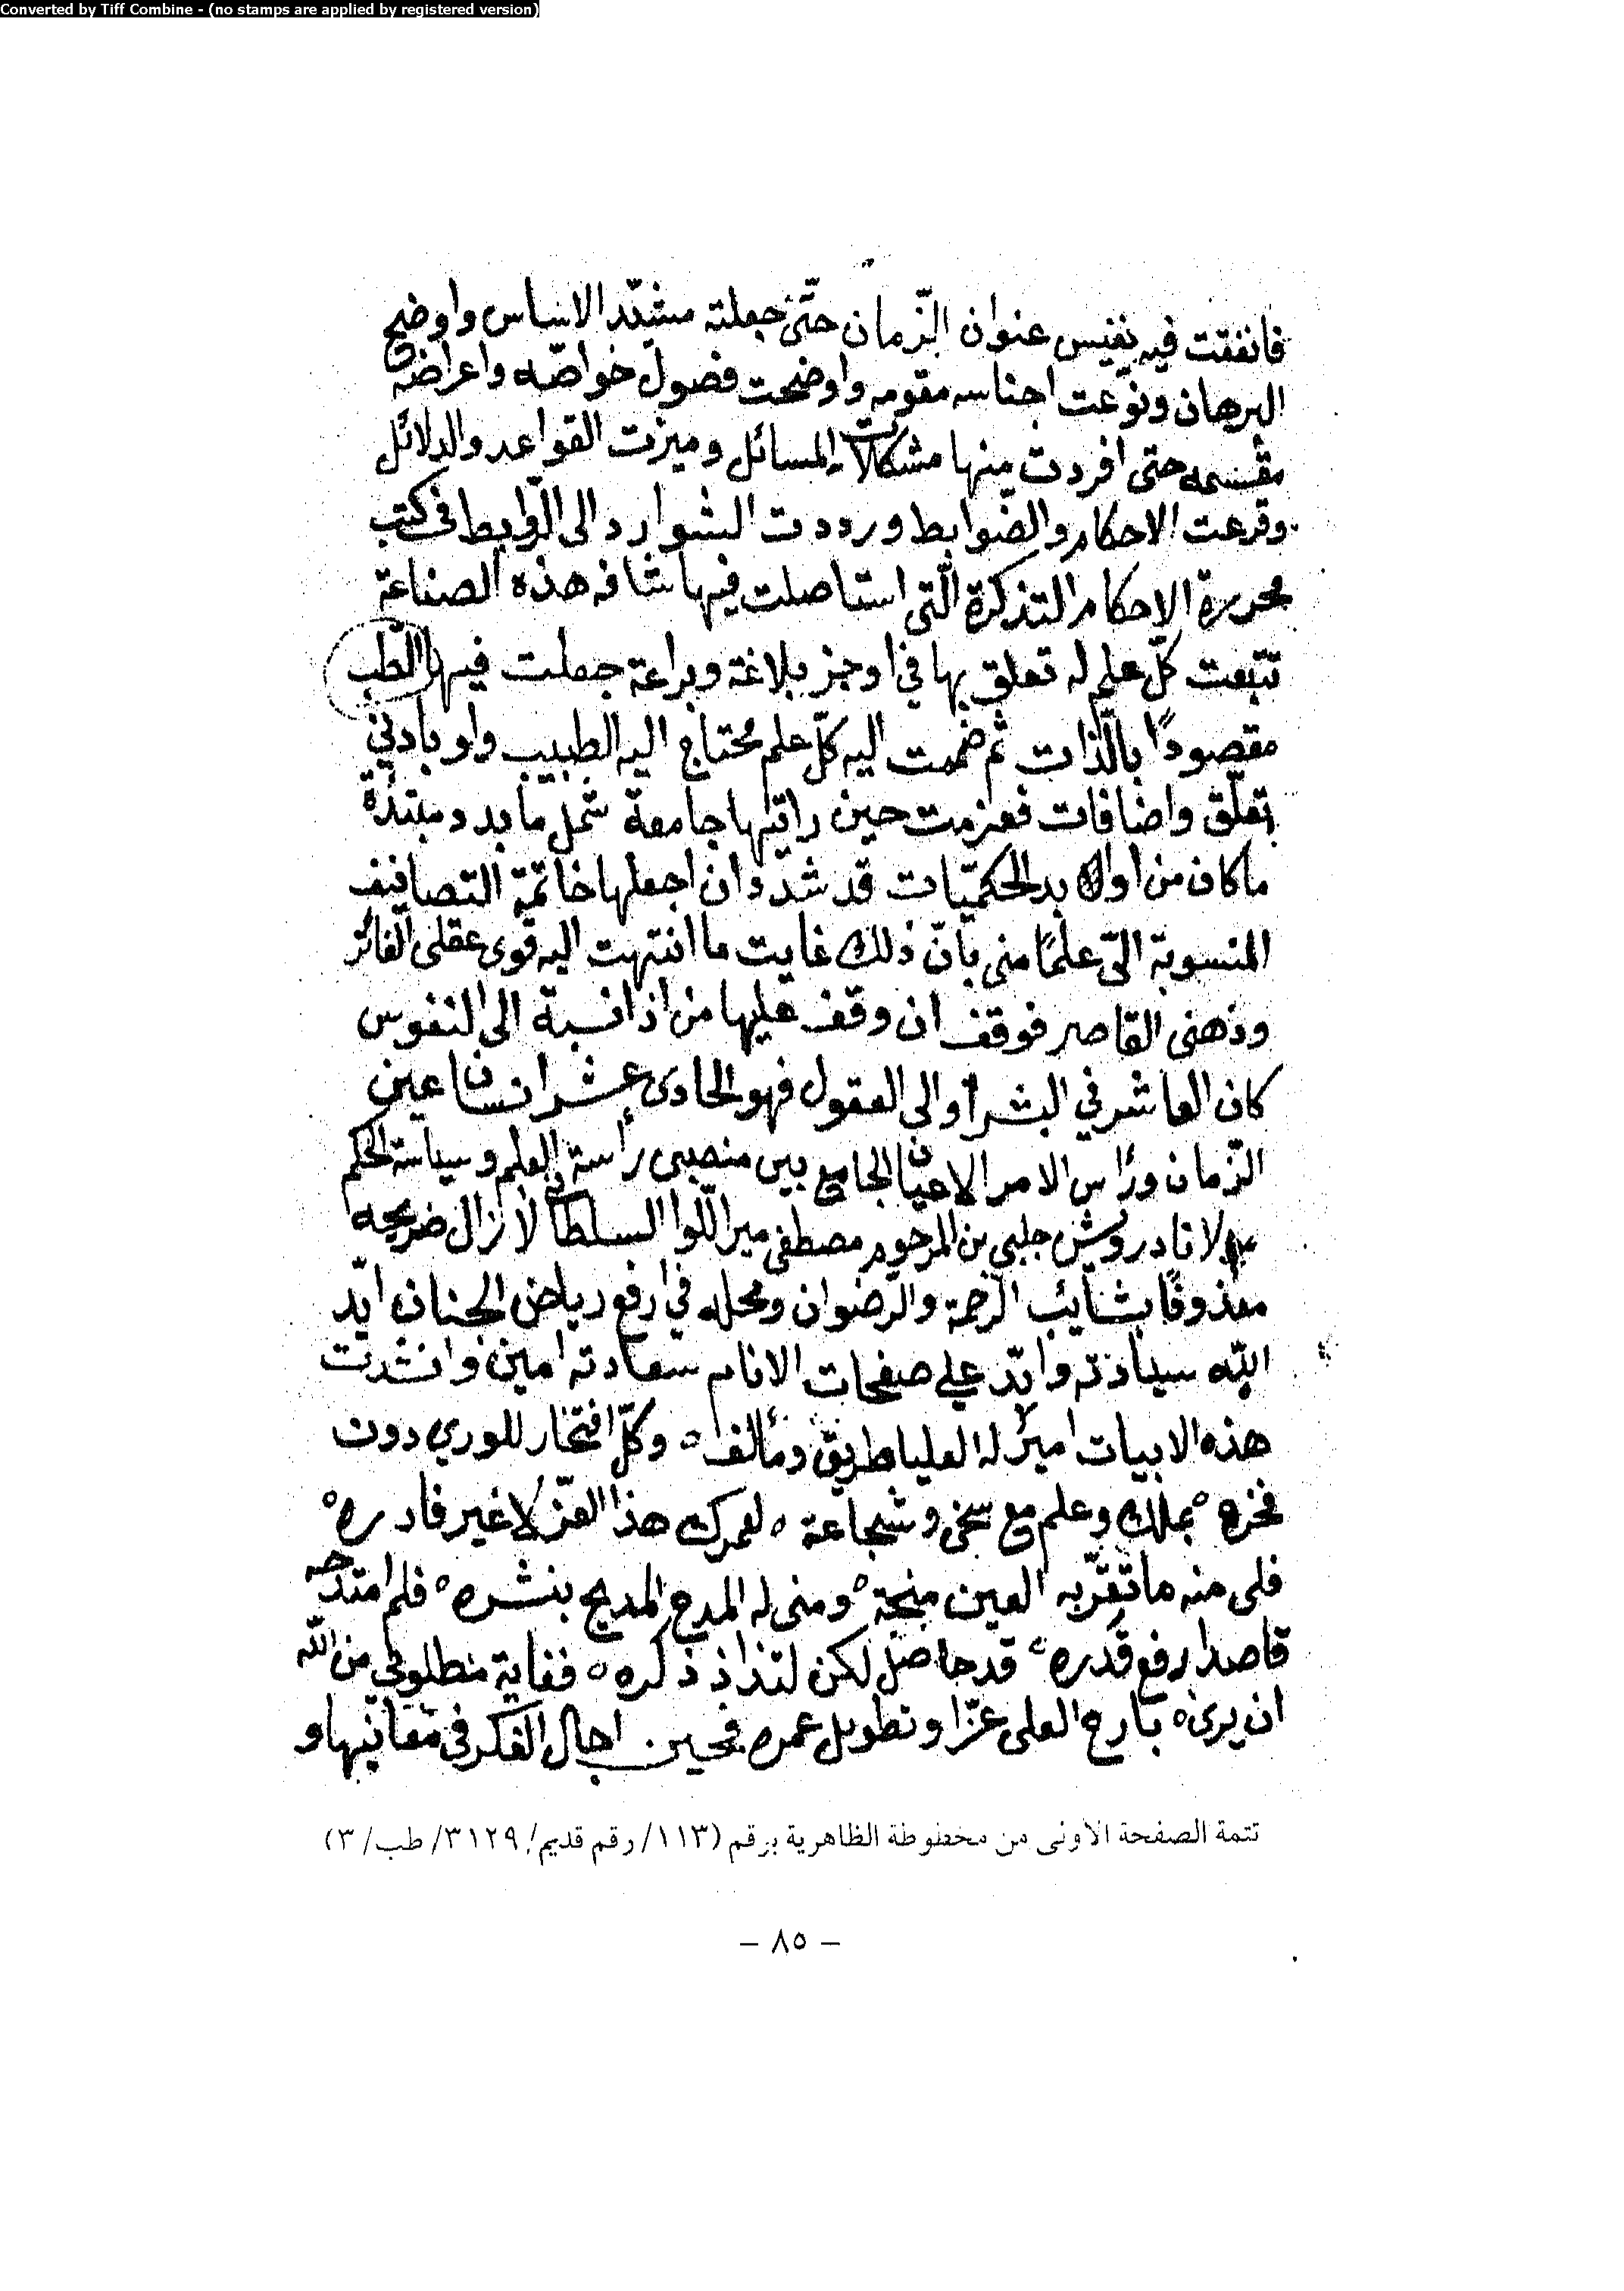 Converted by Tiff Combine - (no stamps are applied by registered version)
فانفقت فيه نفيس عنوان الزّمان حتّى جعلته مشيّد الاساس واوضح
البرهان ونوّعت اجناسه مقومه واوضحت فصول خواصّه واعراضه
مقسمه حتى افردت منها مشكلات المسائل وميزت القواعد والدلائل
وفرعت الاحكام والضوابط ورددت الشوارد الى الروابط فى كتب
محررة الاحكام التذكرة الّتى استاصلت فيها شافه هذه الصناعة
تتبعت كلّ علم له تعلق بها في اوجز بلاغة وبراعة جعلت فيها الطب
مقصودًا بالذات ثم ضممت اليه كلّ علم محتاج اليه الطبيب ولو بادني
تعلّق واضافات فعزمت حين رايتها جامعة شمل ما بدد منبتذة
ما كان من اوابد الحكميّات قد شدد ان اجعلها خاتمة التصانيف
المنسوبة الىّ علمًا منى بانّ ذلك غايت ما انتهت اليه قوى عقلى الفاتر
وذهنى القاصر فوقف ان وقف عليها من اذا نسبة الى النفوس
كان العاشر في البشر او الى العقول فهو الحادى عشر انسان عين
الزّمان ورأس الامر الاعيان الجامع بين منصبى رأسة العلم وسياسة الحكم
مولانا درويش جلبي بن المرحوم مصطفى مير اللّوا السلطاني لا زال ضريحه
مغدوقًا بشايب الرحمة والرضوان ومحله في ارفع رياض الجنان ايّد
الله سيادته وابّد علي صفحات الانام سعادته امين وانشدت
هذه الابيات امير له العليا طريق ومألف ٥ وكلّ افتخار للوري دون
فخره ٥ بملك وعلم مع سخى وشجاعة ٥ لعمرك هذا العزّ لا غير فادره ٥
فلى منه ما تقرّ به العين منحة ٥ ومنى له المدح المديح بنشره ٥ فلم امتدحه
قاصدا رفع قدره ٥ قد حاصل لكن لتذاذ ذكره ٥ فغاية مطلوبي من الله
ان يرى ٥ بارح العلى عزّا وتطويل عمره فحين اجال الفكر فى معانيها و
تتمة الصفحة الأولى من مخطوطة الظاهرية برقم (١١٣/ رقم قديم/ ٣١٢٩/ طب/ ٣)
– ٨٥ –